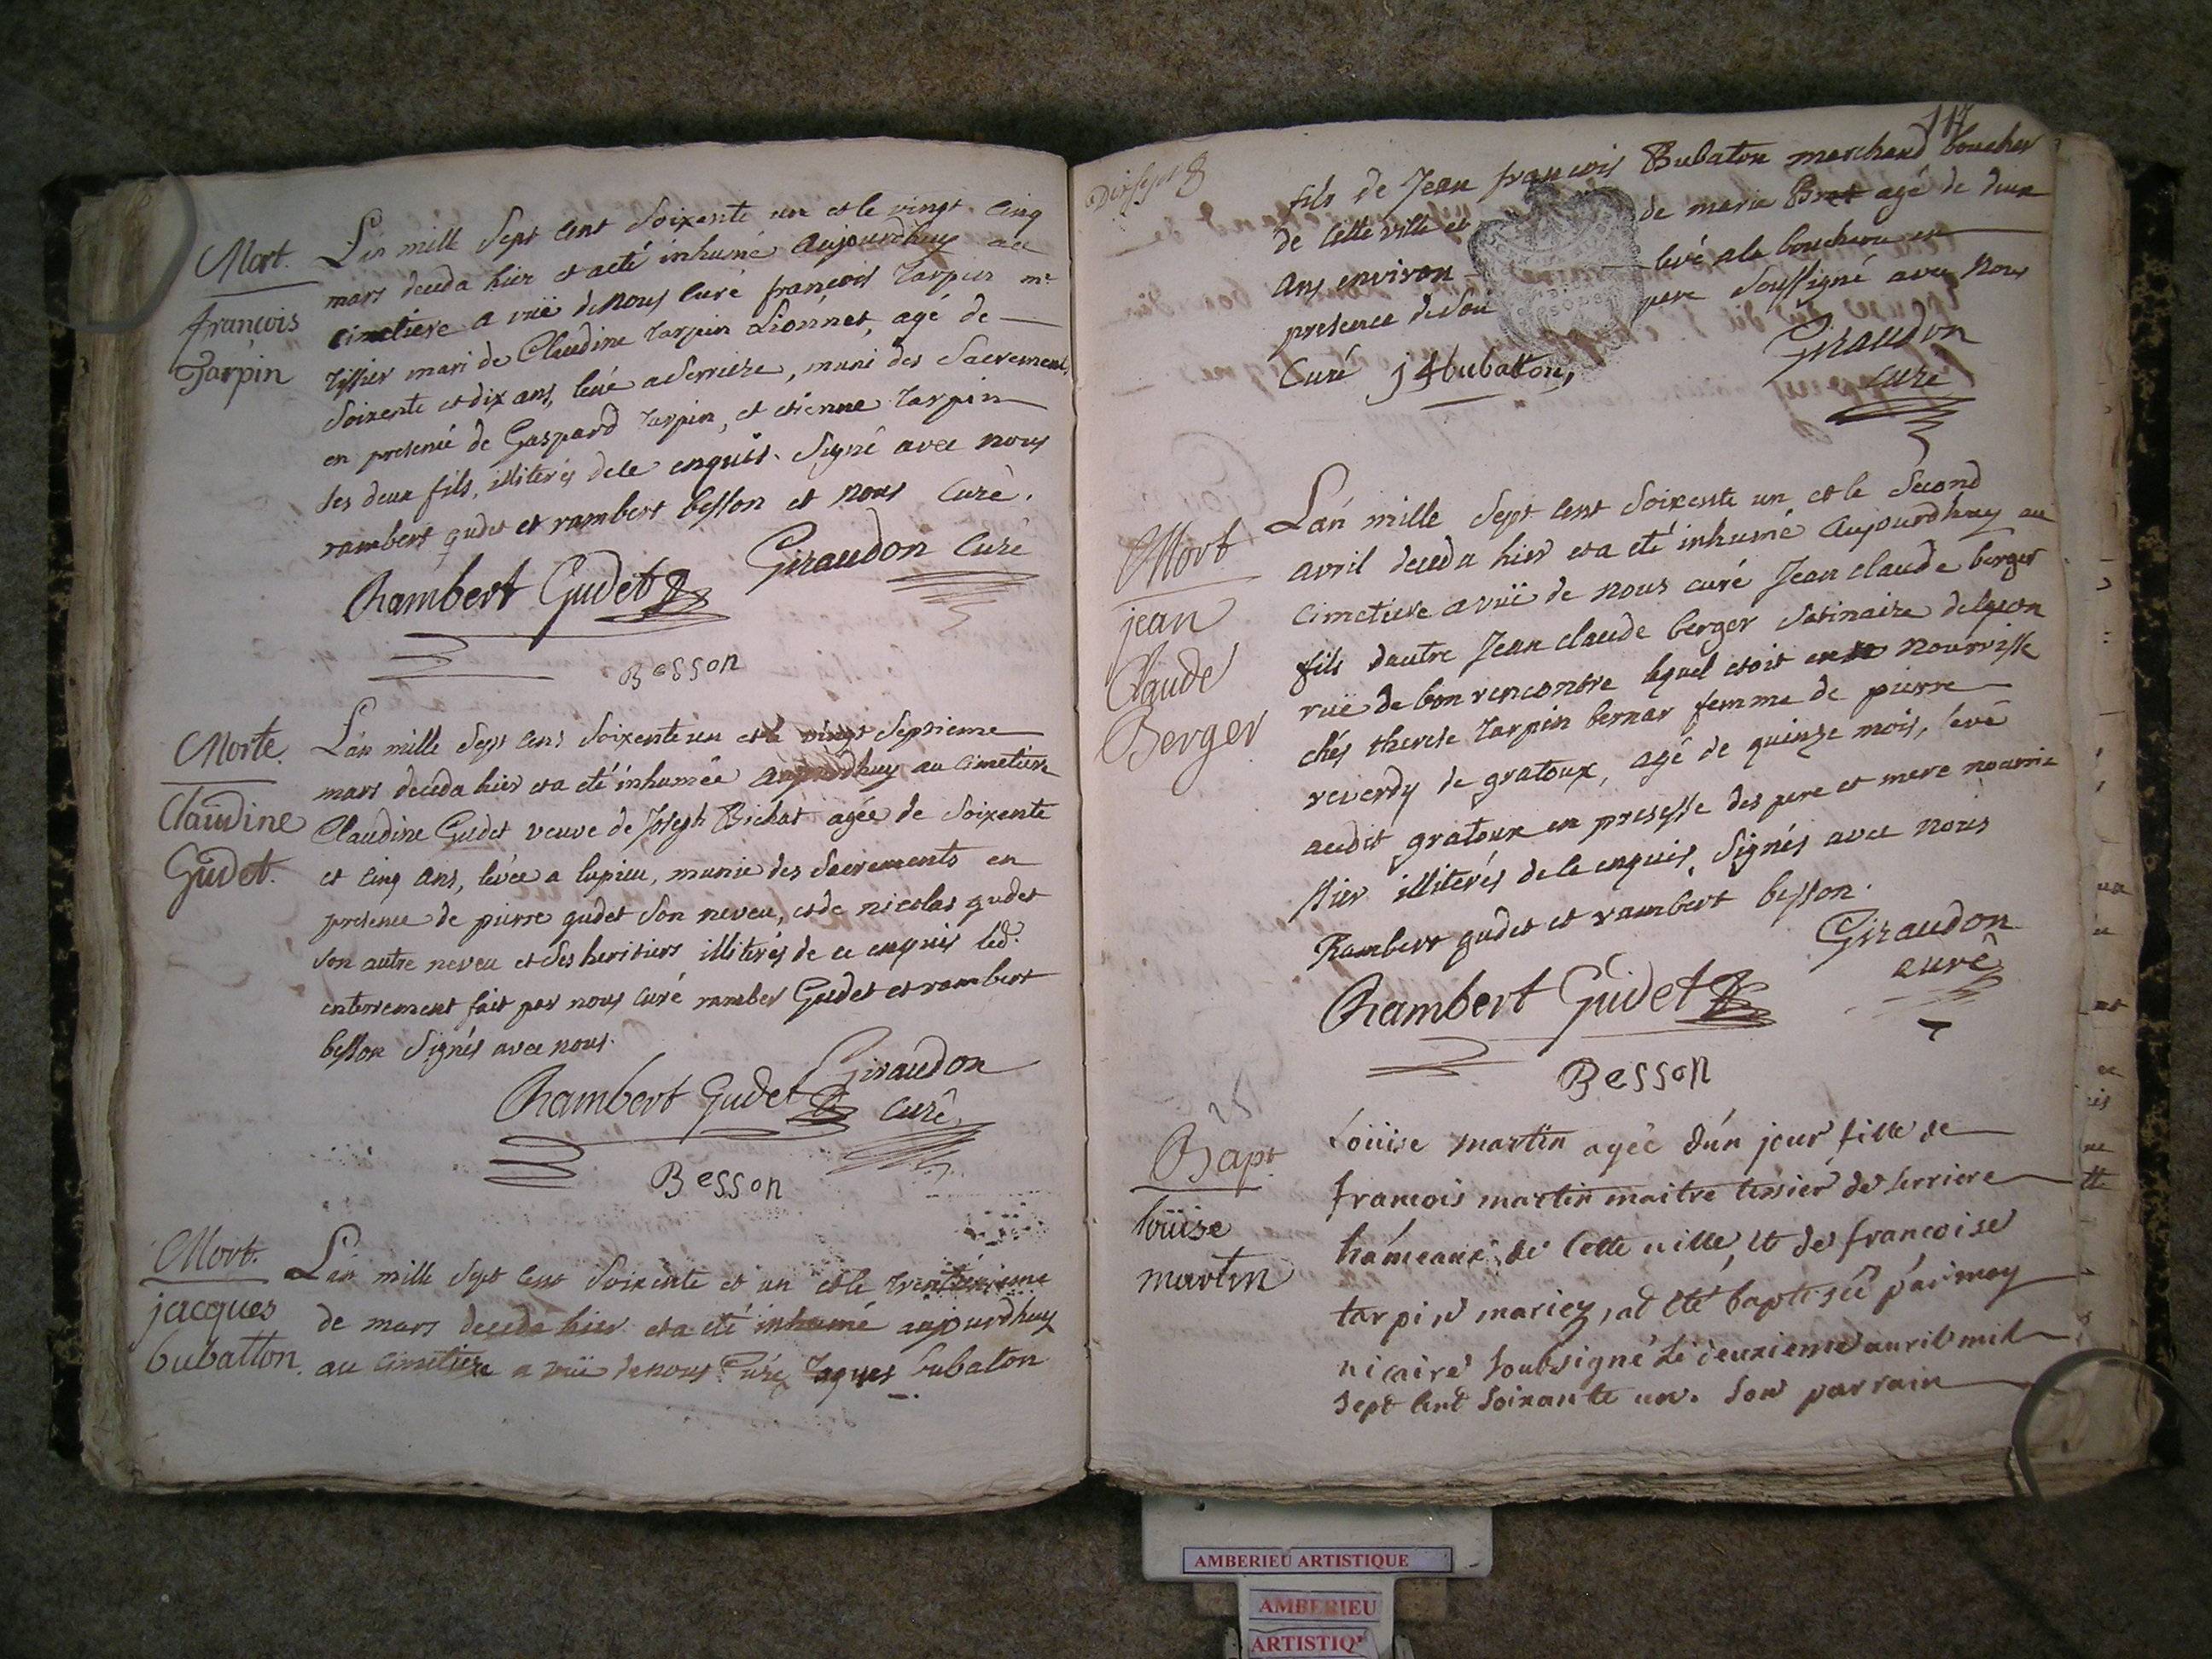 Mort.
françois
Tarpin
Lan mille Sept Cent Soixente un et le vingt cinq
mars deceda hier et a eté inhumé aujourdhuy au
Cimetiere a vuë de nous Curé françois Tarpin mr
Tissier mari de Claudine Tarpin Lionnet, agé de
Soixente et dix ans, levé a Serriere, muni des Sacrements
en presence de Gaspard Tarpin, et etienne Tarpin
ses deux fils, illiterés de ce enquis. Signé avec nous
rambert gudet et rambert besson et nous Curé.
Rambert Gudet
Giraudon Curé
Besson
Morte.
Claudine
Gudet.
Lan mille Sept Cens Soixente un et le vingt Septieme
mars deceda hier et a eté inhumée aujourdhuy au Cimetiere
Claudine Gudet veuve de Joseph Bichat agée de Soixente
et Cinq ans, levée a lupieu, munie des Sacrements en
presence de pierre gudet Son neveu, et de nicolas gudet
Son autre neveu et Ses heritiers illiterés de ce enquis led.
enterrement fait par nous Curé ramber Gudet et rambert
besson Signés avec nous.
Rambert Gudet
Giraudon
Curé
Besson
Mort.
jacques
bubatton.
Lan mille Sept Cent Soixente et un et le
de mars deceda hier et a eté inhumé aujourdhuy
au Cimetiere a vuë de nous Curé Jaques bubaton
117
Dix sept
fils de Jean françois Bubaton marchand boucher
de Cette ville et de marie Bret agé de deux
ans environ levé a la boucherie en
presence de Son pere Soussigné avec nous
Curé j f bubatton,
Giraudon
Curé
Mort
jean
Claude
Berger
Lan mille Sept Cent Soixente un et le Second
avril deceda hier et a eté inhumé aujourdhuy au
Cimetiere a vuë de nous curé Jean claude berger
fils dautre Jean claude berger Satinaire de lyon
ruë de bon rencontre lequel etoit en nourrisse
chés therese Tarpin bernar femme de pierre
reverdy de gratoux, agé de quinze mois, levé
audit gratoux en presesse des pere et mere nourri
ssier illiterés de ce enquis, Signés avec nous
Rambert gudet et rambert besson.
Giraudon
curé
Rambert Gudet
Besson
Bapt
loüise
martin
Loüise martin agée d'un jour fille de
francois martin maitre tissier de serriere
hameaux de Cette ville, et de francoise
tarpin mariez, at eté baptisée par moy
vicaire soubsigné Le deuxieme avril mil
sept cent soixante un. Son parrain
AMBERIEU ARTISTIQUE
AMBERIEU
ARTISTIQ